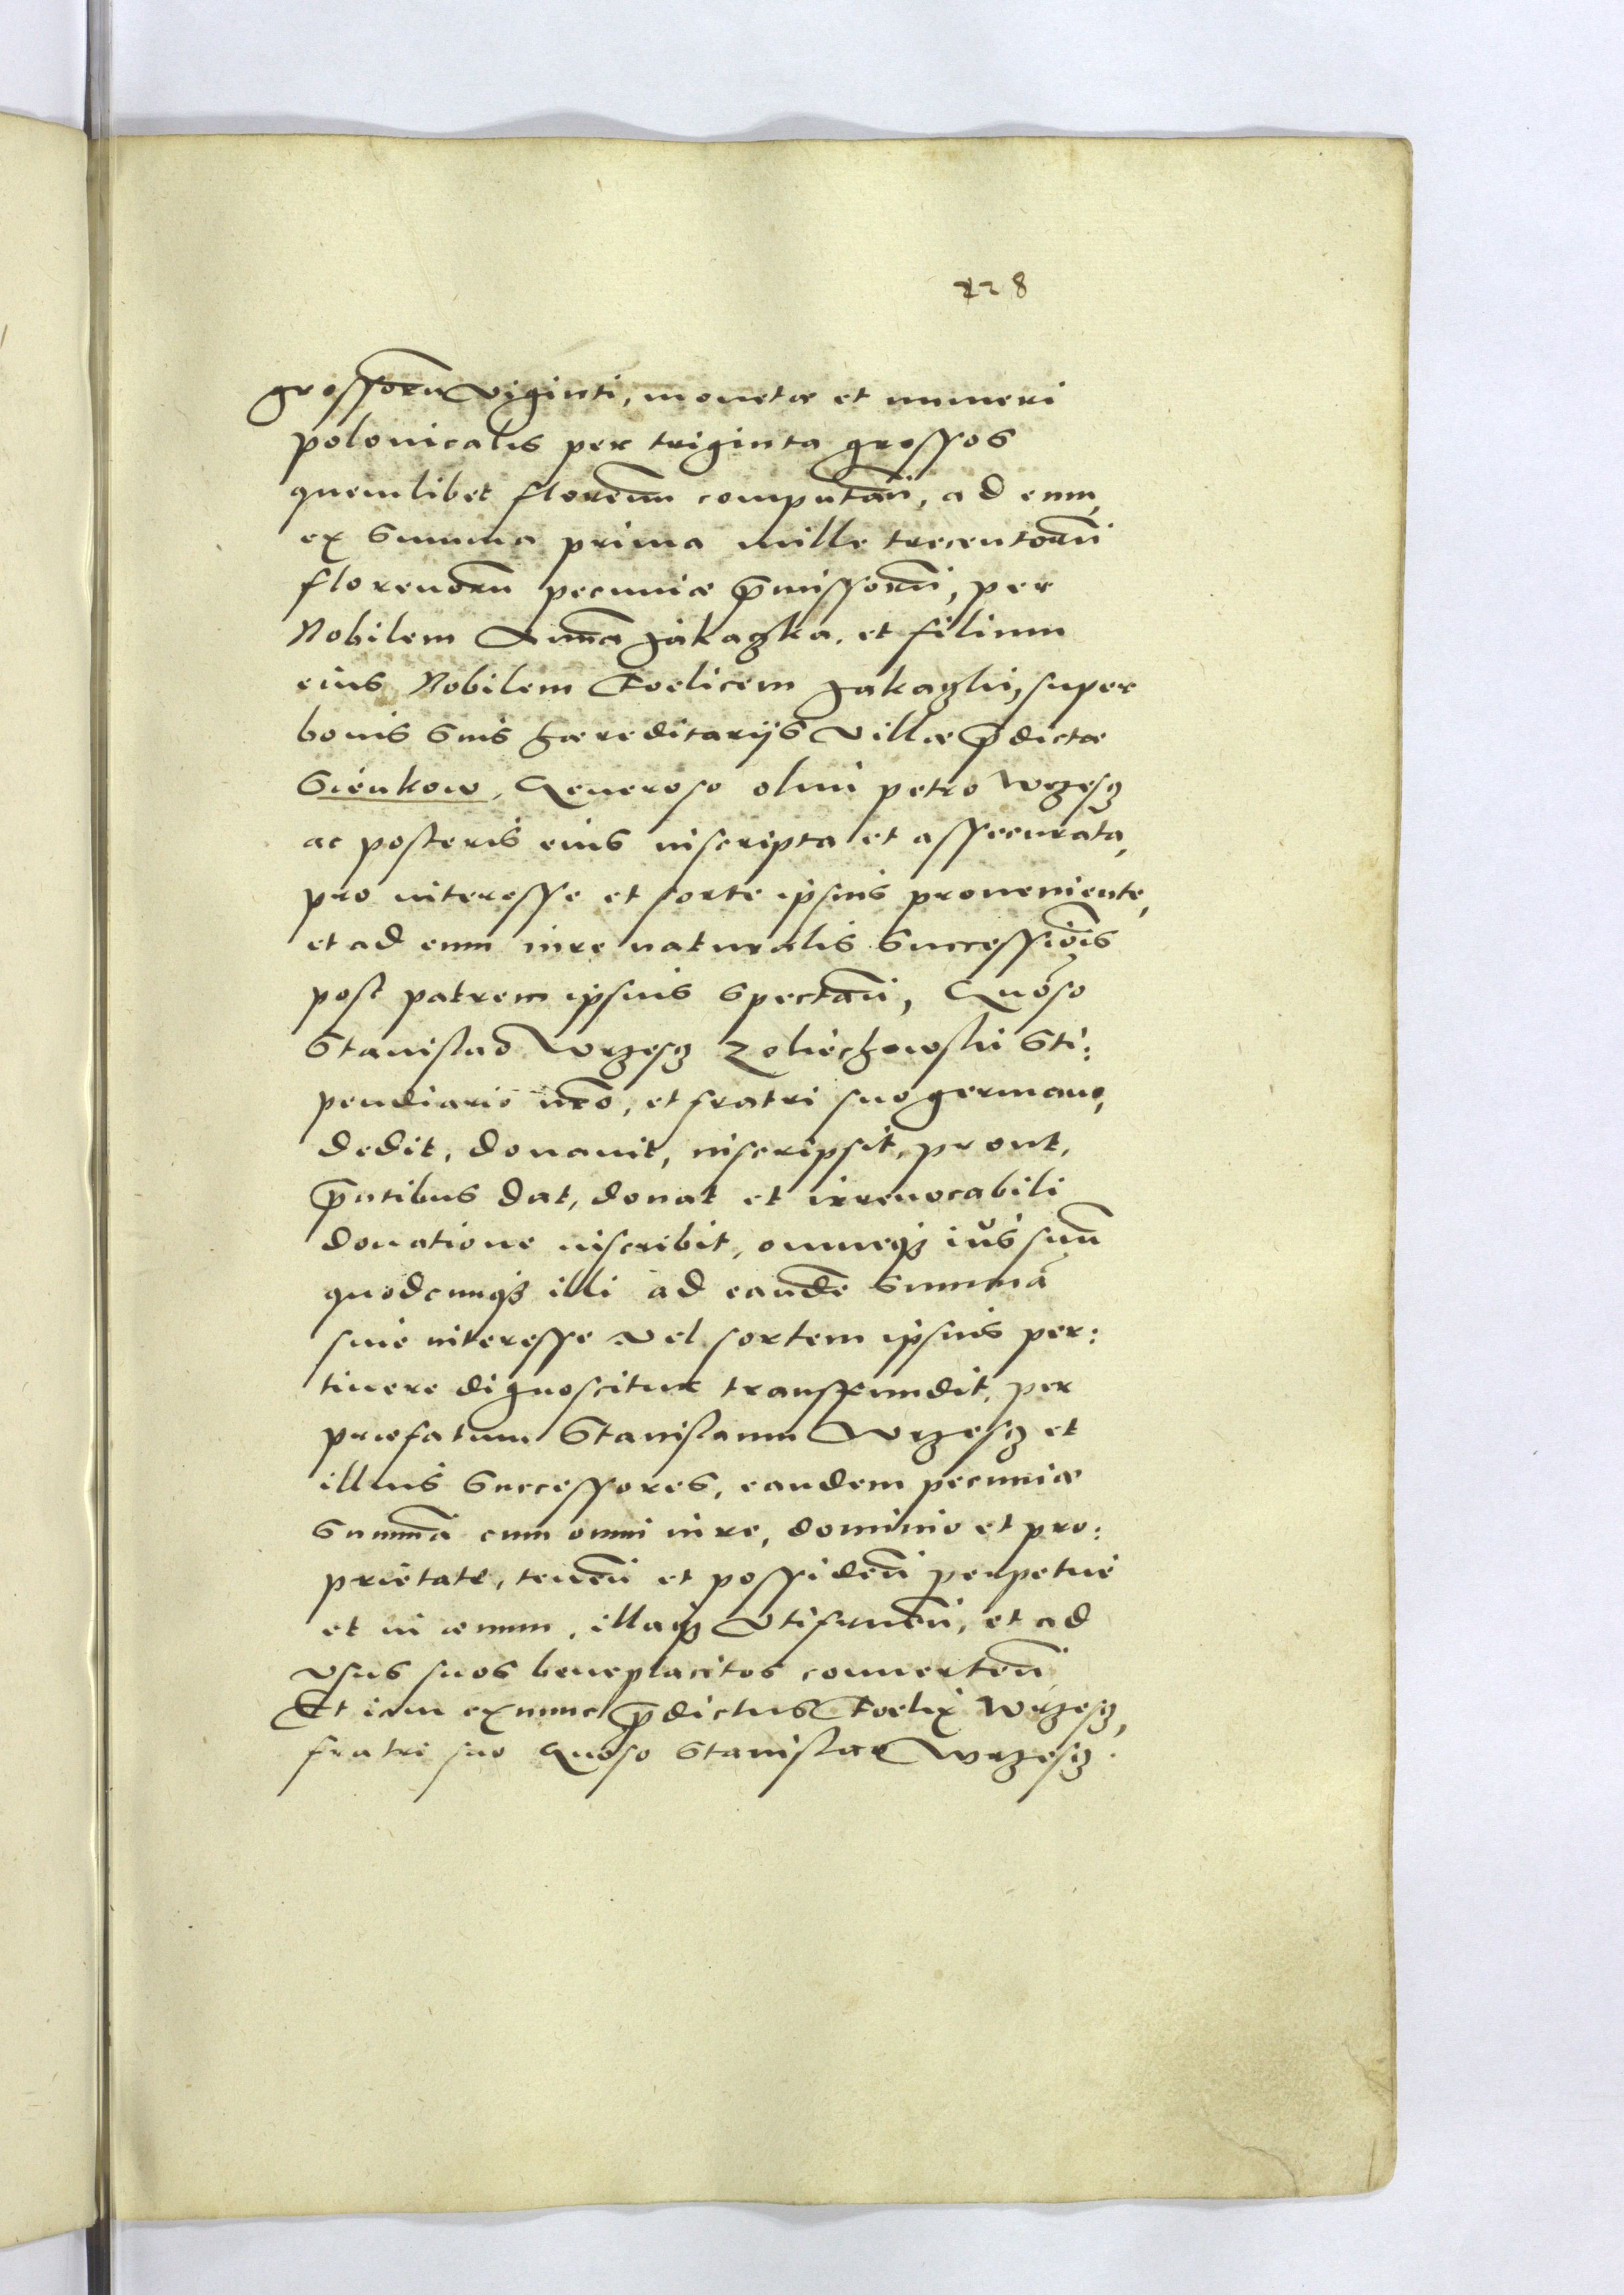 228
grossorū viginti, monetæ et numeri
polonicalis per triginta grossos
quemlibet florenū computañ, ad eum,
ex Summa prima mille trecentorū
florenorū pecuniæ p̄missorū, per
Nobilem et filium
eius Nobilem Foelicem super
bonis Suis hæreditarijs villæ p̄dictæ
Sienkow, Generoso olim petro Wrzesz
ac posteris eius inscripta et assecurata,
pro interesse et sorte ipsius proueniente,
et ad eum iure naturalis Successiōis
post patrem ipsius Spectañ, Gnōso
Stanislao Wrzesz Zeliechowski Sti:
pendiario nrō, et fratri suo germano,
dedit, donauit, inscripsit, prout,
p̄ntibus dat, donat et irreuocabili
donatione inscribit, omneqȝ ius suū
quodcunqȝ illi ad eandē Summā
siue interesse vel sortem ipsius per:
tinere dignoscitur transfundit, per
præfatum Stanislaum Wrzesz et
illius Successores, eandem pecuniæ
Summā cum omni iure, dominio et pro:
prietate, teneñ et possideñ perpetue
et in æuum, illaqȝ vtifrueñ, et ad
vsus suos beneplacitos conuerteñ
Et iam exnunc p̄dictus Foelix Wrzesz,
fratri suo Gnoso Stanislao Wrzesz.